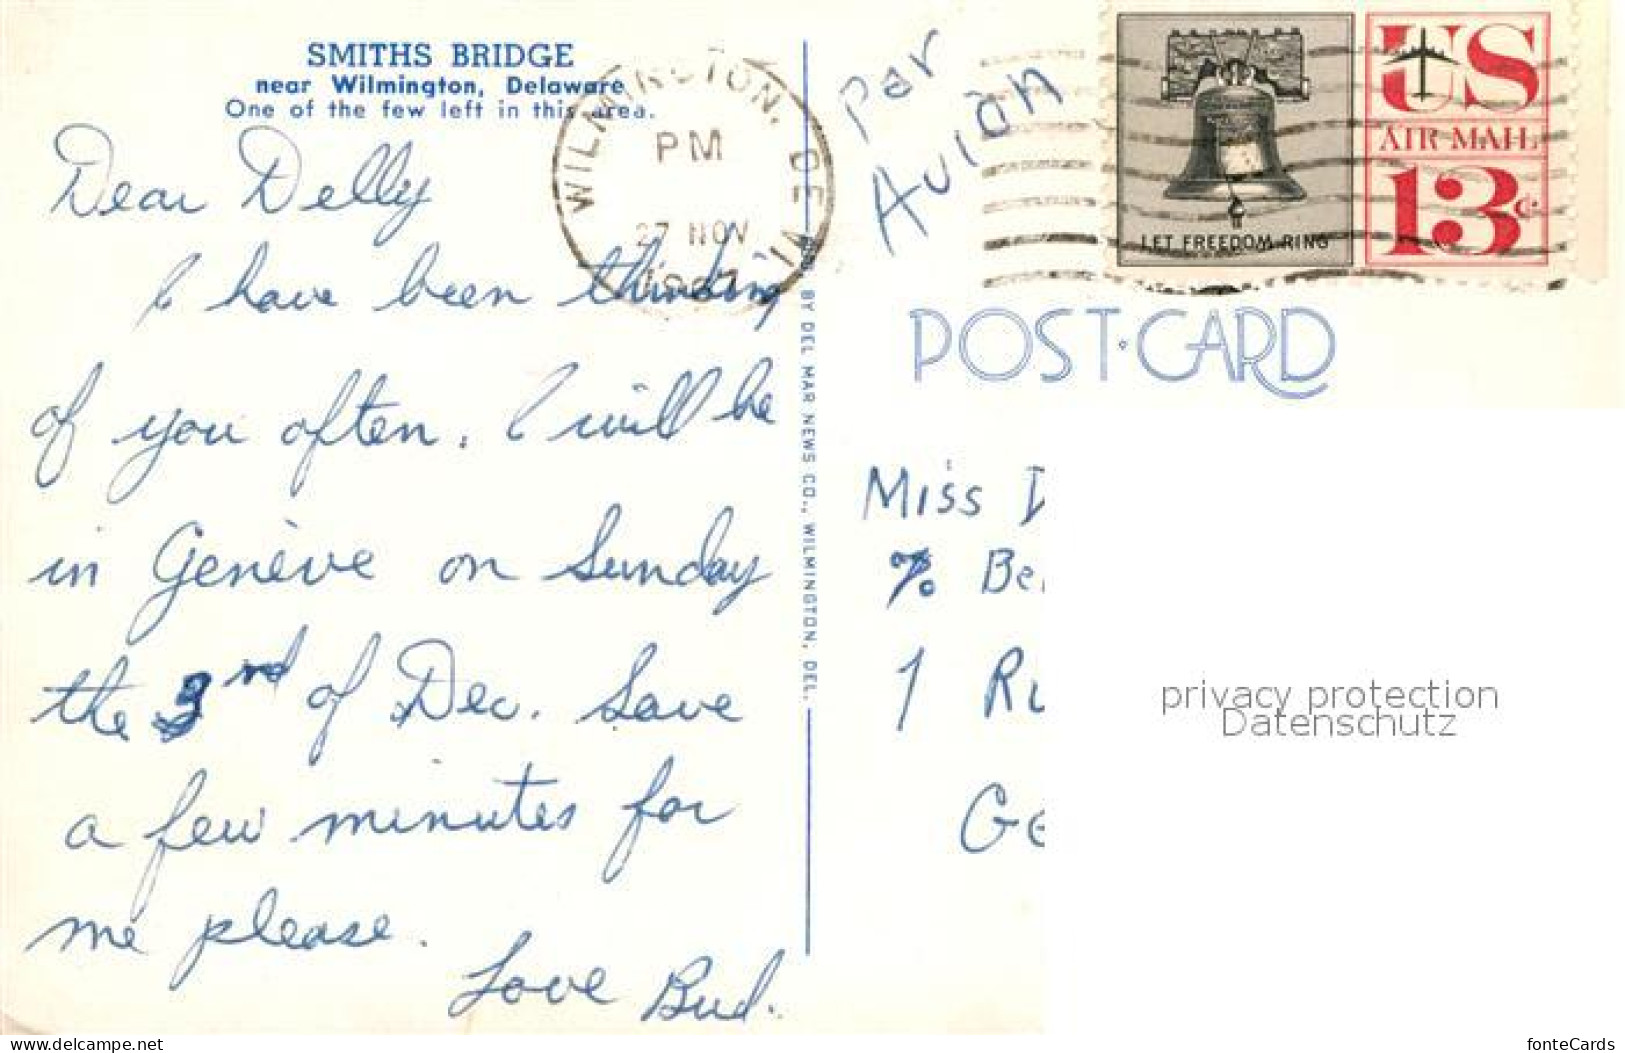 SMITHS BRIDGE
near Wilmington, Delaware
One of the few left in this area.
WILMINGTON, DE
PM
27 NOV
Dear Delly
I have been thinking
of you often. I will be
in Genève on Sunday
the 3rd of Dec. Save
a few minutes for
me please.
Love Bud.
BY DEL MAR NEWS CO., WILMINGTON, DEL.
Par
Avion
LET FREEDOM RING
US
AIR MAIL
13c
POST·CARD
Miss D
% Be
1 Ru
Ge
privacy protection
Datenschutz
delcampe.net
fonteCards